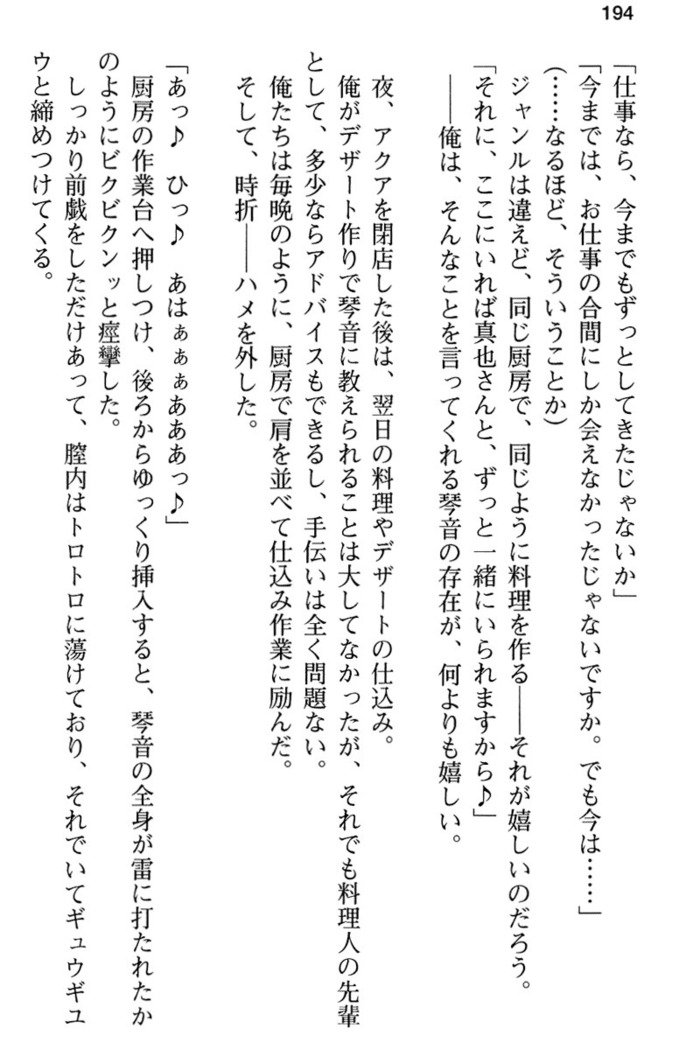 194
「仕事なら、今までもずっとしてきたじゃないか」
「今までは、お仕事の合間にしか会えなかったじゃないですか。でも今は……」
(……なるほど、そういうことか)
ジャンルは違えど、同じ厨房で、同じように料理を作る――それが嬉しいのだろう。
「それに、ここにいれば真也さんと、ずっと一緒にいられますから♪」
――俺は、そんなことを言ってくれる琴音の存在が、何よりも嬉しい。
夜、アクアを閉店した後は、翌日の料理やデザートの仕込み。
俺がデザート作りで琴音に教えられることは大してなかったが、それでも料理人の先輩
として、多少ならアドバイスもできるし、手伝いは全く問題ない。
俺たちは毎晩のように、厨房で肩を並べて仕込み作業に励んだ。
そして、時折――ハメを外した。
「あっ♪　ひっ♪　あはぁぁぁあああっ♪」
厨房の作業台へ押しつけ、後ろからゆっくり挿入すると、琴音の全身が雷に打たれたか
のようにビクビクンッと痙攣した。
しっかり前戯をしただけあって、膣内はトロトロに蕩けており、それでいてギュウギュ
ウと締めつけてくる。